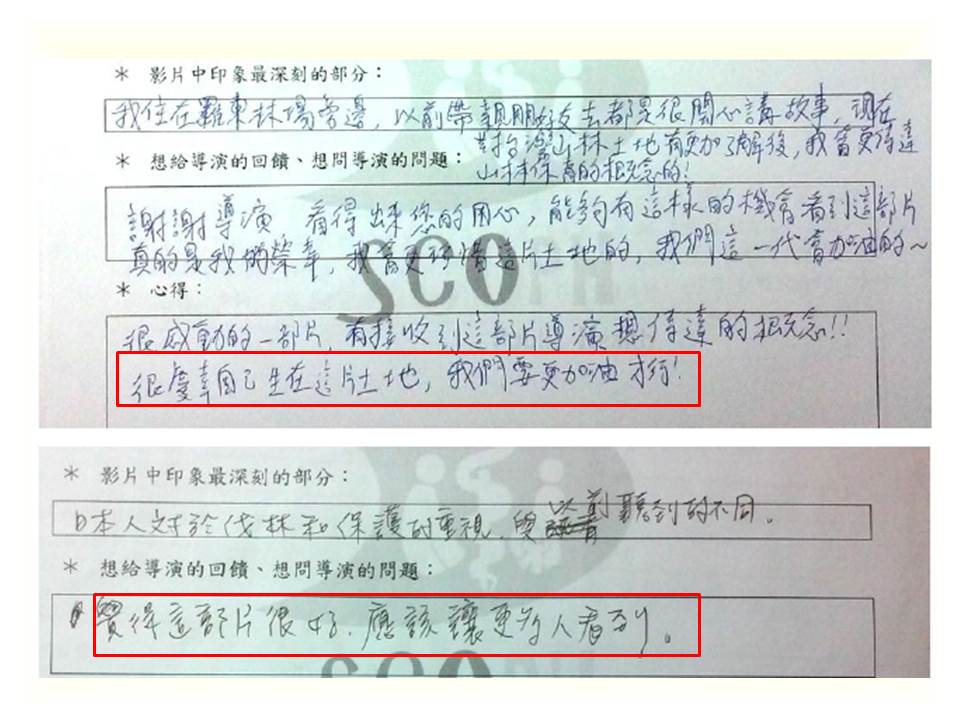 * 影片中印象最深刻的部分：
我住在羅東林場旁邊，以前帶親朋好友去都是很開心講故事，現在
對台灣山林土地有更加了解後，我會更傳達
* 想給導演的回饋、想問導演的問題：
山林保育的概念的！
謝謝導演 看得出來您的用心，能夠有這樣的機會看到這部片
真的是我們榮幸，我會更珍惜這片土地的，我們這一代會加油的~
SCOPH
* 心得：
很感動的一部片，有接收到這部片導演想傳達的概念!!
很慶幸自己生在這片土地，我們要更加油才行!
* 影片中印象最深刻的部分：
日本人對於伐林和保護的重視，與以前聽到的不同。
* 想給導演的回饋、想問導演的問題：
覺得這部片很好，應該讓更多人看到。
SCOPH